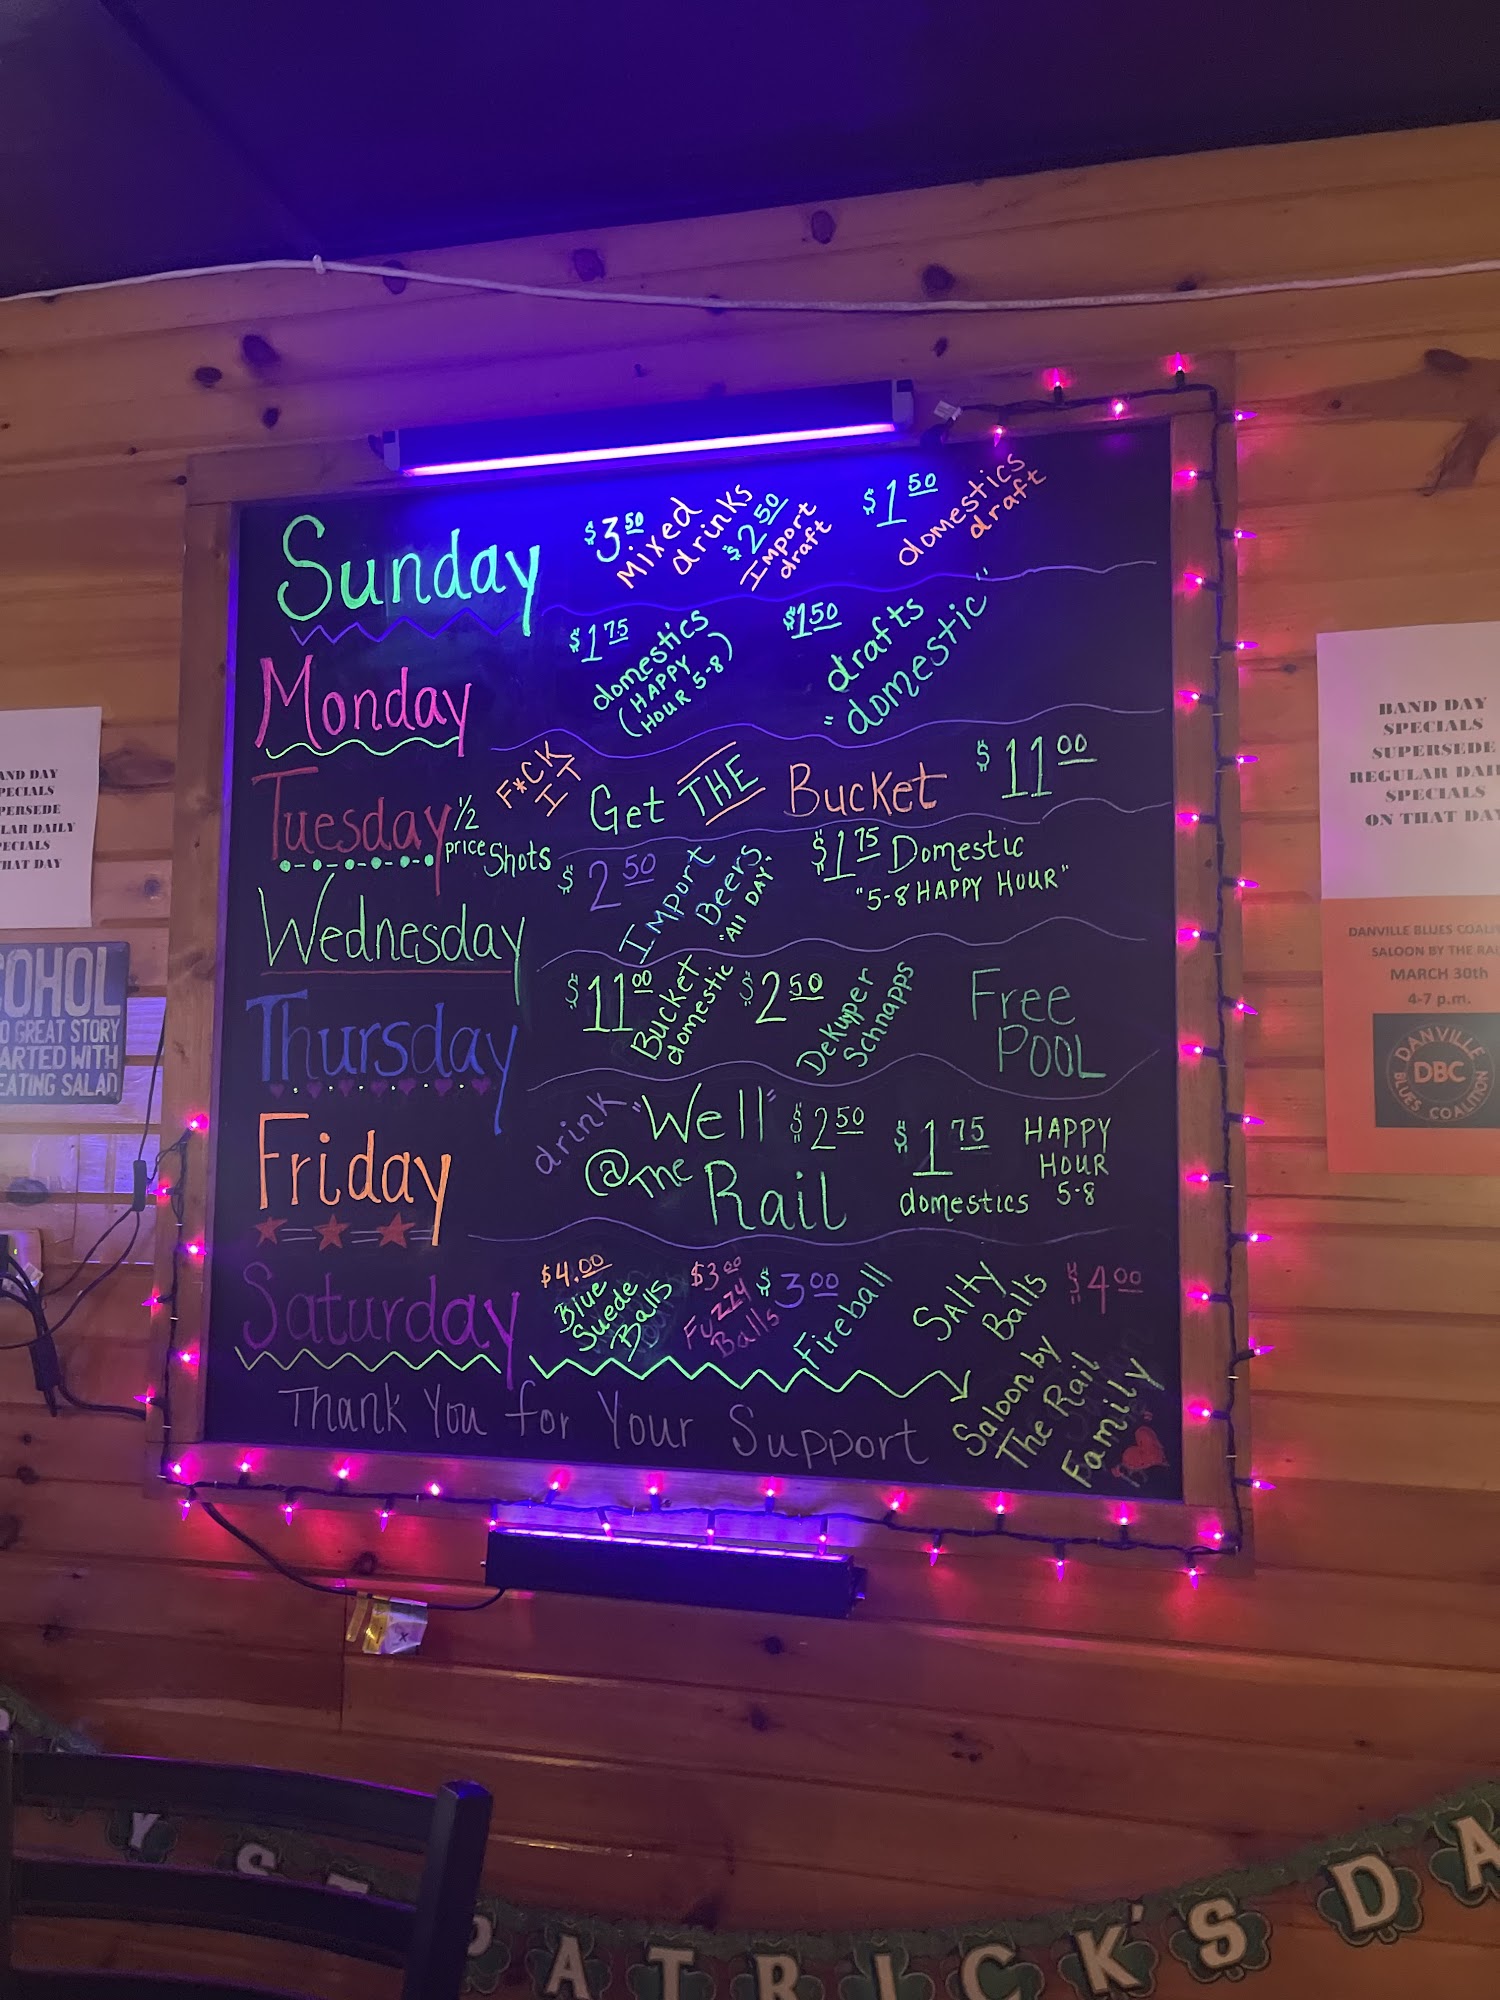 Sunday
$3.50
Mixed
drinks
$2.50
Import
draft
$1.50
domestics
draft
Monday
$1.75
domestics
(HAPPY
HOUR 5-8)
$1.50
drafts
"domestic"
Tuesday
1/2
price Shots
F*CK
IT
Get THE Bucket $11.00
Wednesday
$2.50
Import
Beers
"All DAY"
$1.75 Domestic
"5-8 HAPPY HOUR"
Thursday
$11.00
Bucket
domestic
$2.50
DeKuyper
Schnapps
Free
POOL
Friday
drink "Well" $2.50
@The Rail
$1.75
domestics
HAPPY
HOUR
5-8
Saturday
$4.00
Blue
Suede
Balls
$3.00
Fuzzy
Balls
$3.00
Fireball
Salty
Balls
$4.00
Thank You for Your Support
Saloon by
The Rail
Family
AND DAY
PECIALS
PERSEDE
LAR DAILY
PECIALS
THAT DAY
COHOL
O GREAT STORY
ARTED WITH
EATING SALAD
BAND DAY
SPECIALS
SUPERSEDE
REGULAR DAI
SPECIALS
ON THAT DAY
DANVILLE BLUES COALI
SALOON BY THE RAI
MARCH 30th
4-7 p.m.
DANVILLE
DBC
BLUES COALITION
Y ST PATRICK'S DA